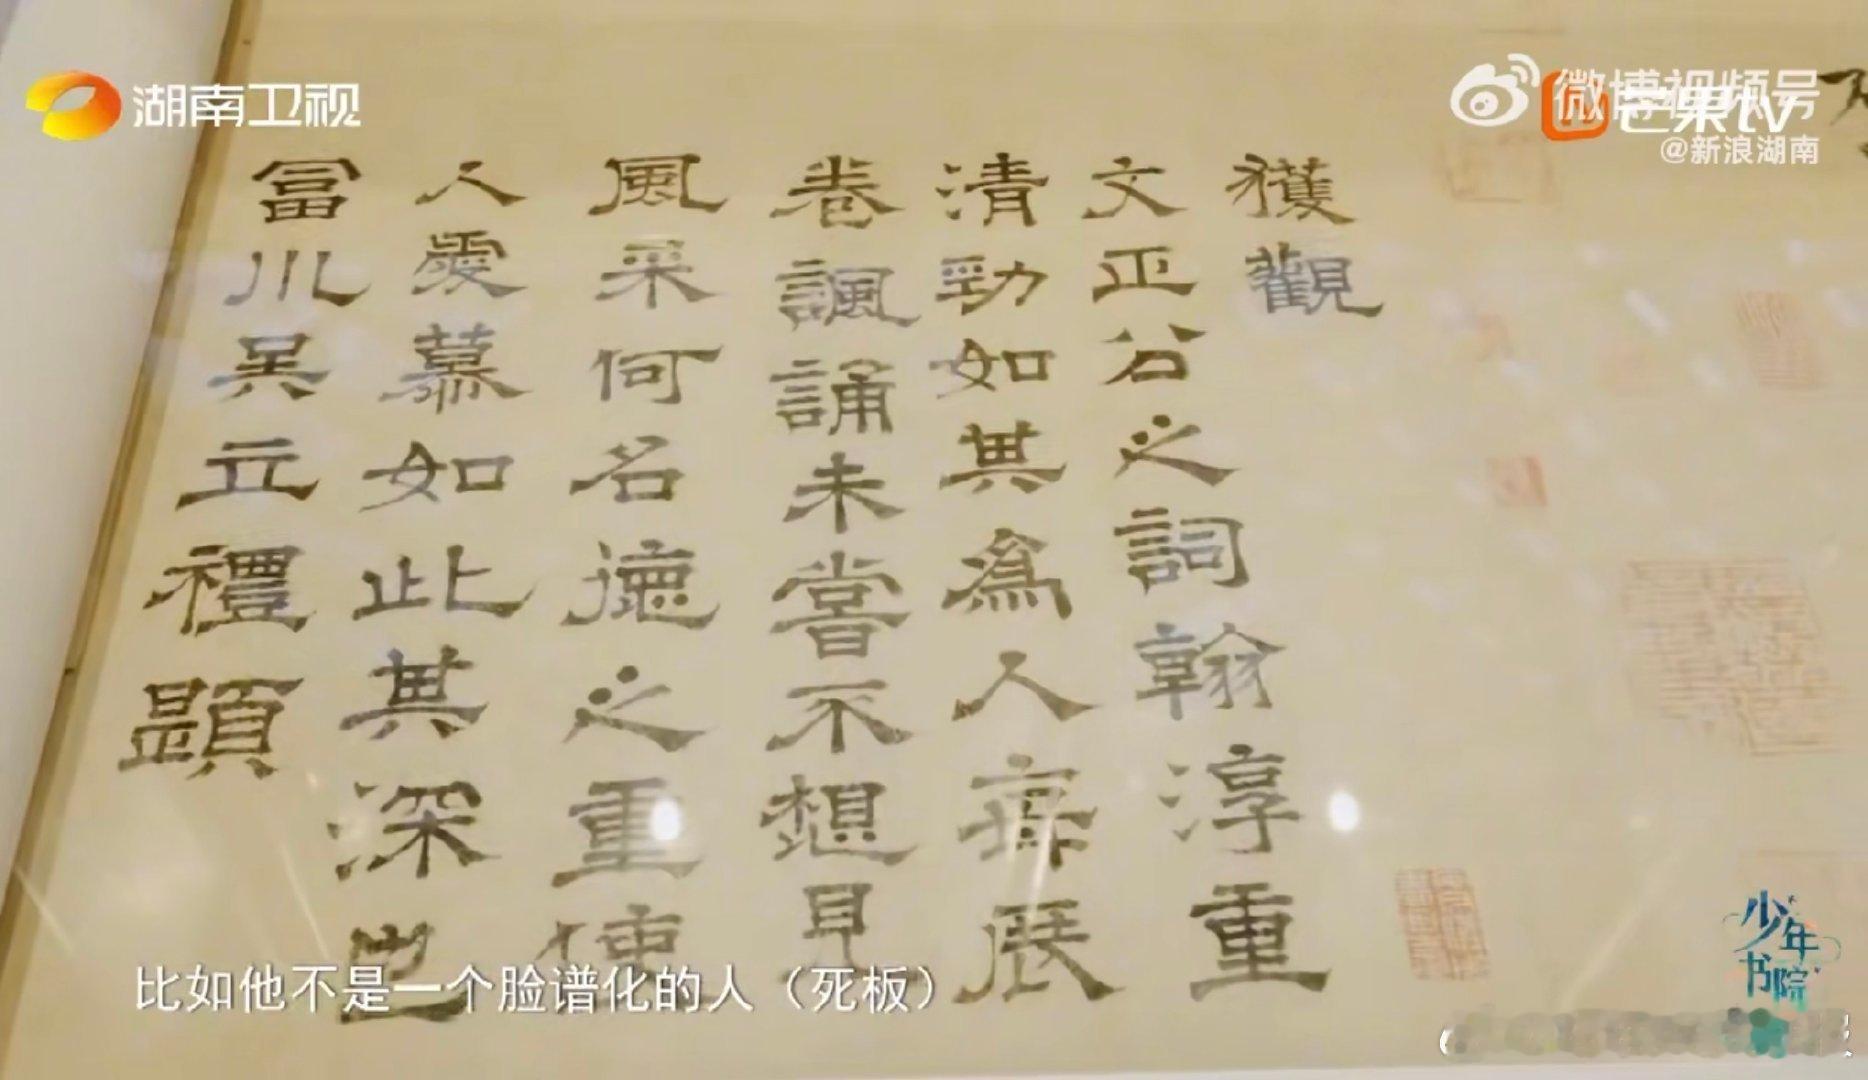 湖南卫视
微博视频号
芒果tv
@新浪湖南
獲觀
文正公之詞翰淳重
清勁如其為人展
卷諷誦未嘗不想見
風采何名德之重使
人愛慕如此其深也
冨川吴立禮題
比如他不是一个脸谱化的人（死板）
少年
书院